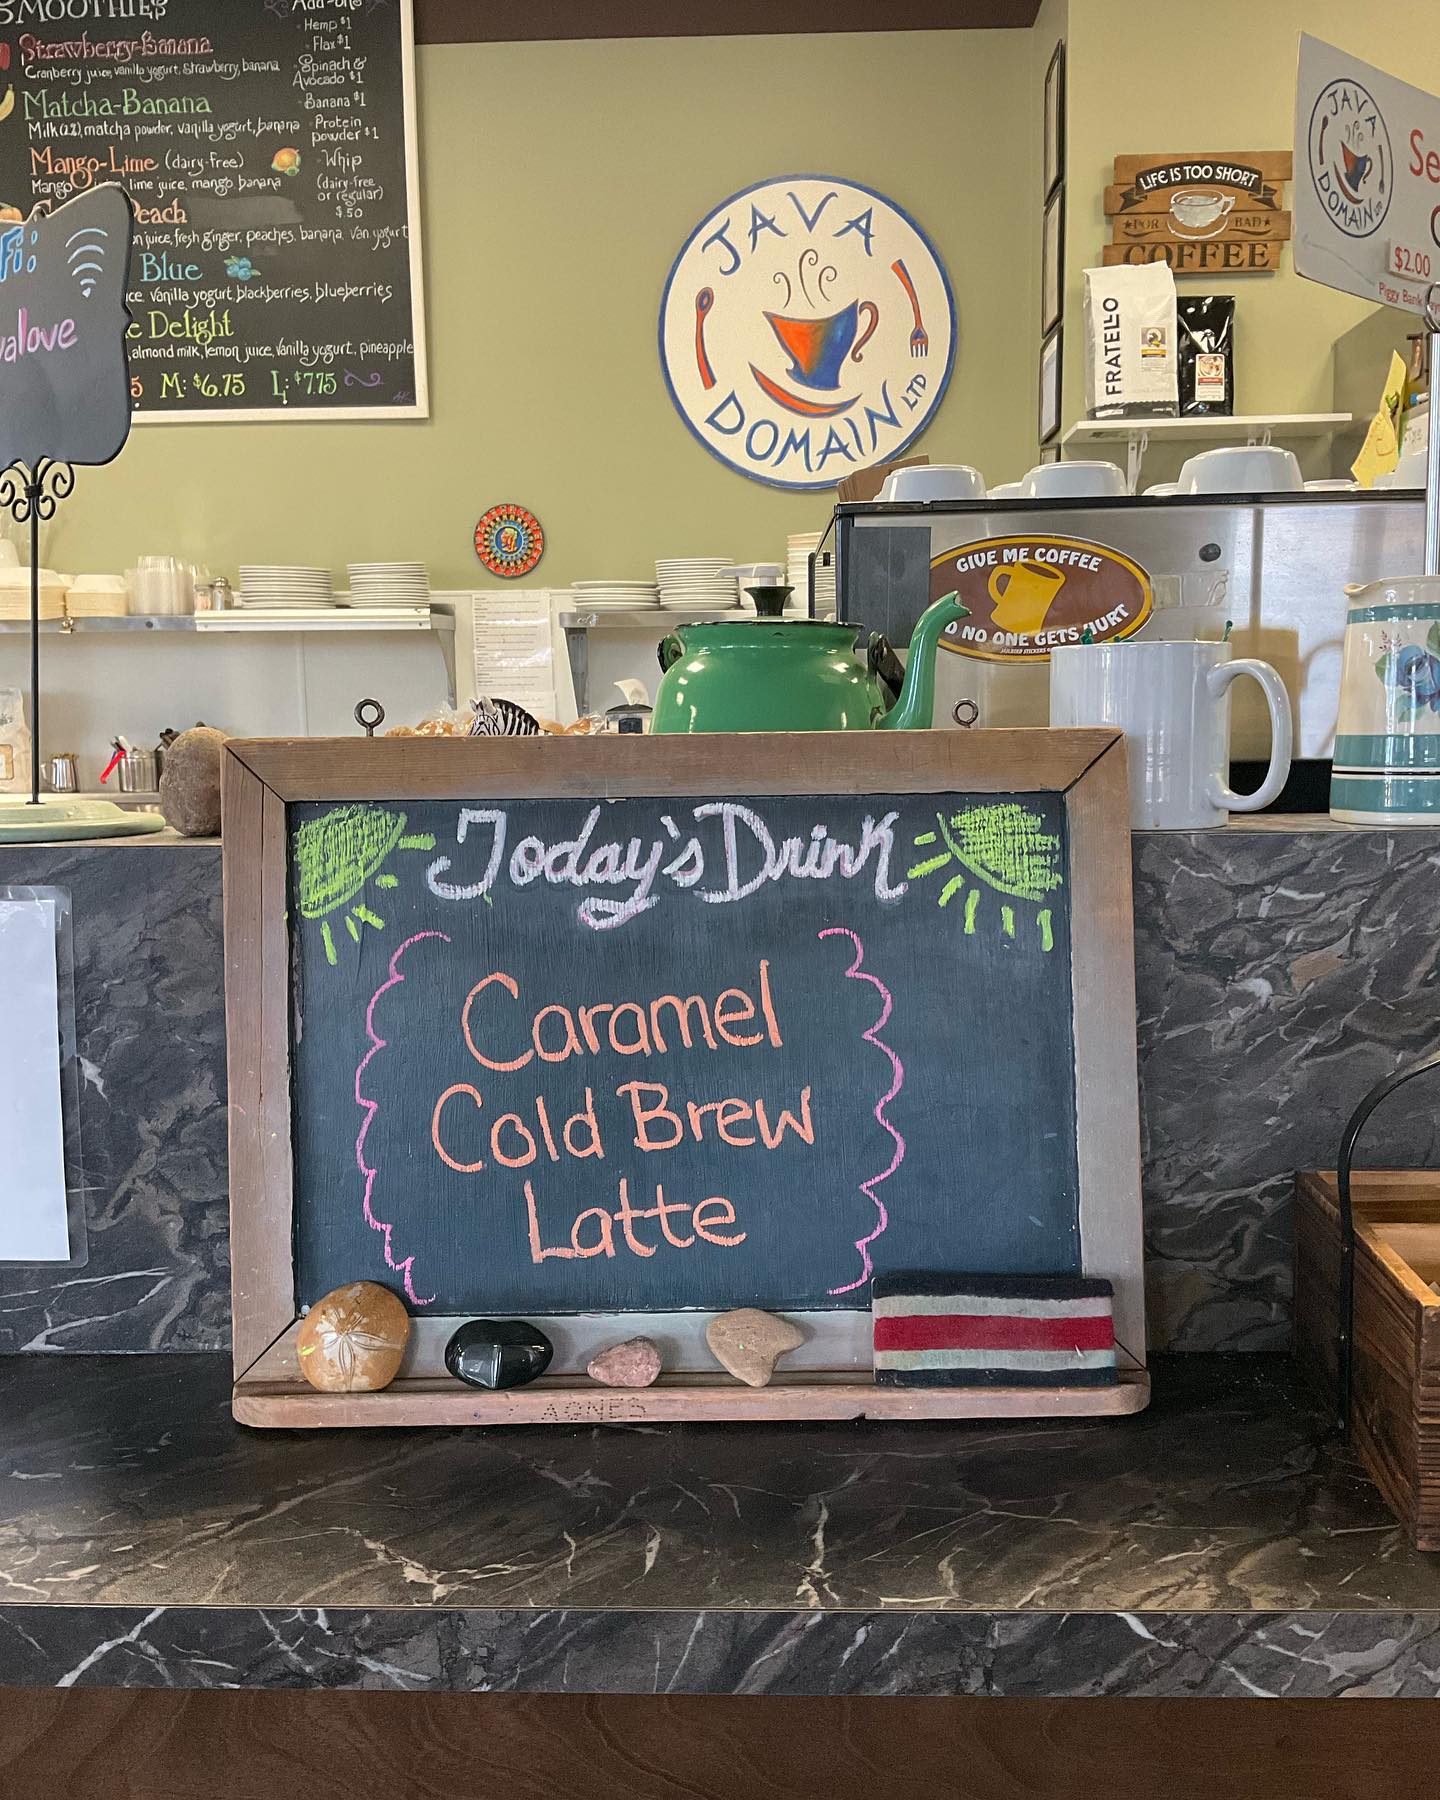 SMOOTHIES
Strawberry-Banana
Cranberry juice, vanilla yogurt, strawberry, banana
Matcha-Banana
Milk(2%), matcha powder, vanilla yogurt, banana
Mango-Lime (dairy-free)
Mango lime juice, mango, banana
Peach
juice, fresh ginger, peaches, banana, van yogurt
Blue
vanilla yogurt, blackberries, blueberries
Delight
almond milk, lemon juice, vanilla yogurt, pineapple
M: $6.75 L: $7.75
Add-ons
Hemp $1
Flax $1
Spinach &
Avocado $1
Banana $1
Protein
powder $1
Whip
(dairy-free
or regular)
$.50
Fi:
JAVA
DOMAIN LTD
LIFE IS TOO SHORT
FOR BAD
COFFEE
FRATELLO
JAVA
DOMAIN LTD
$2.00
Piggy Bank
GIVE ME COFFEE
NO ONE GETS HURT
Today's Drink
Caramel
Cold Brew
Latte
AGNES